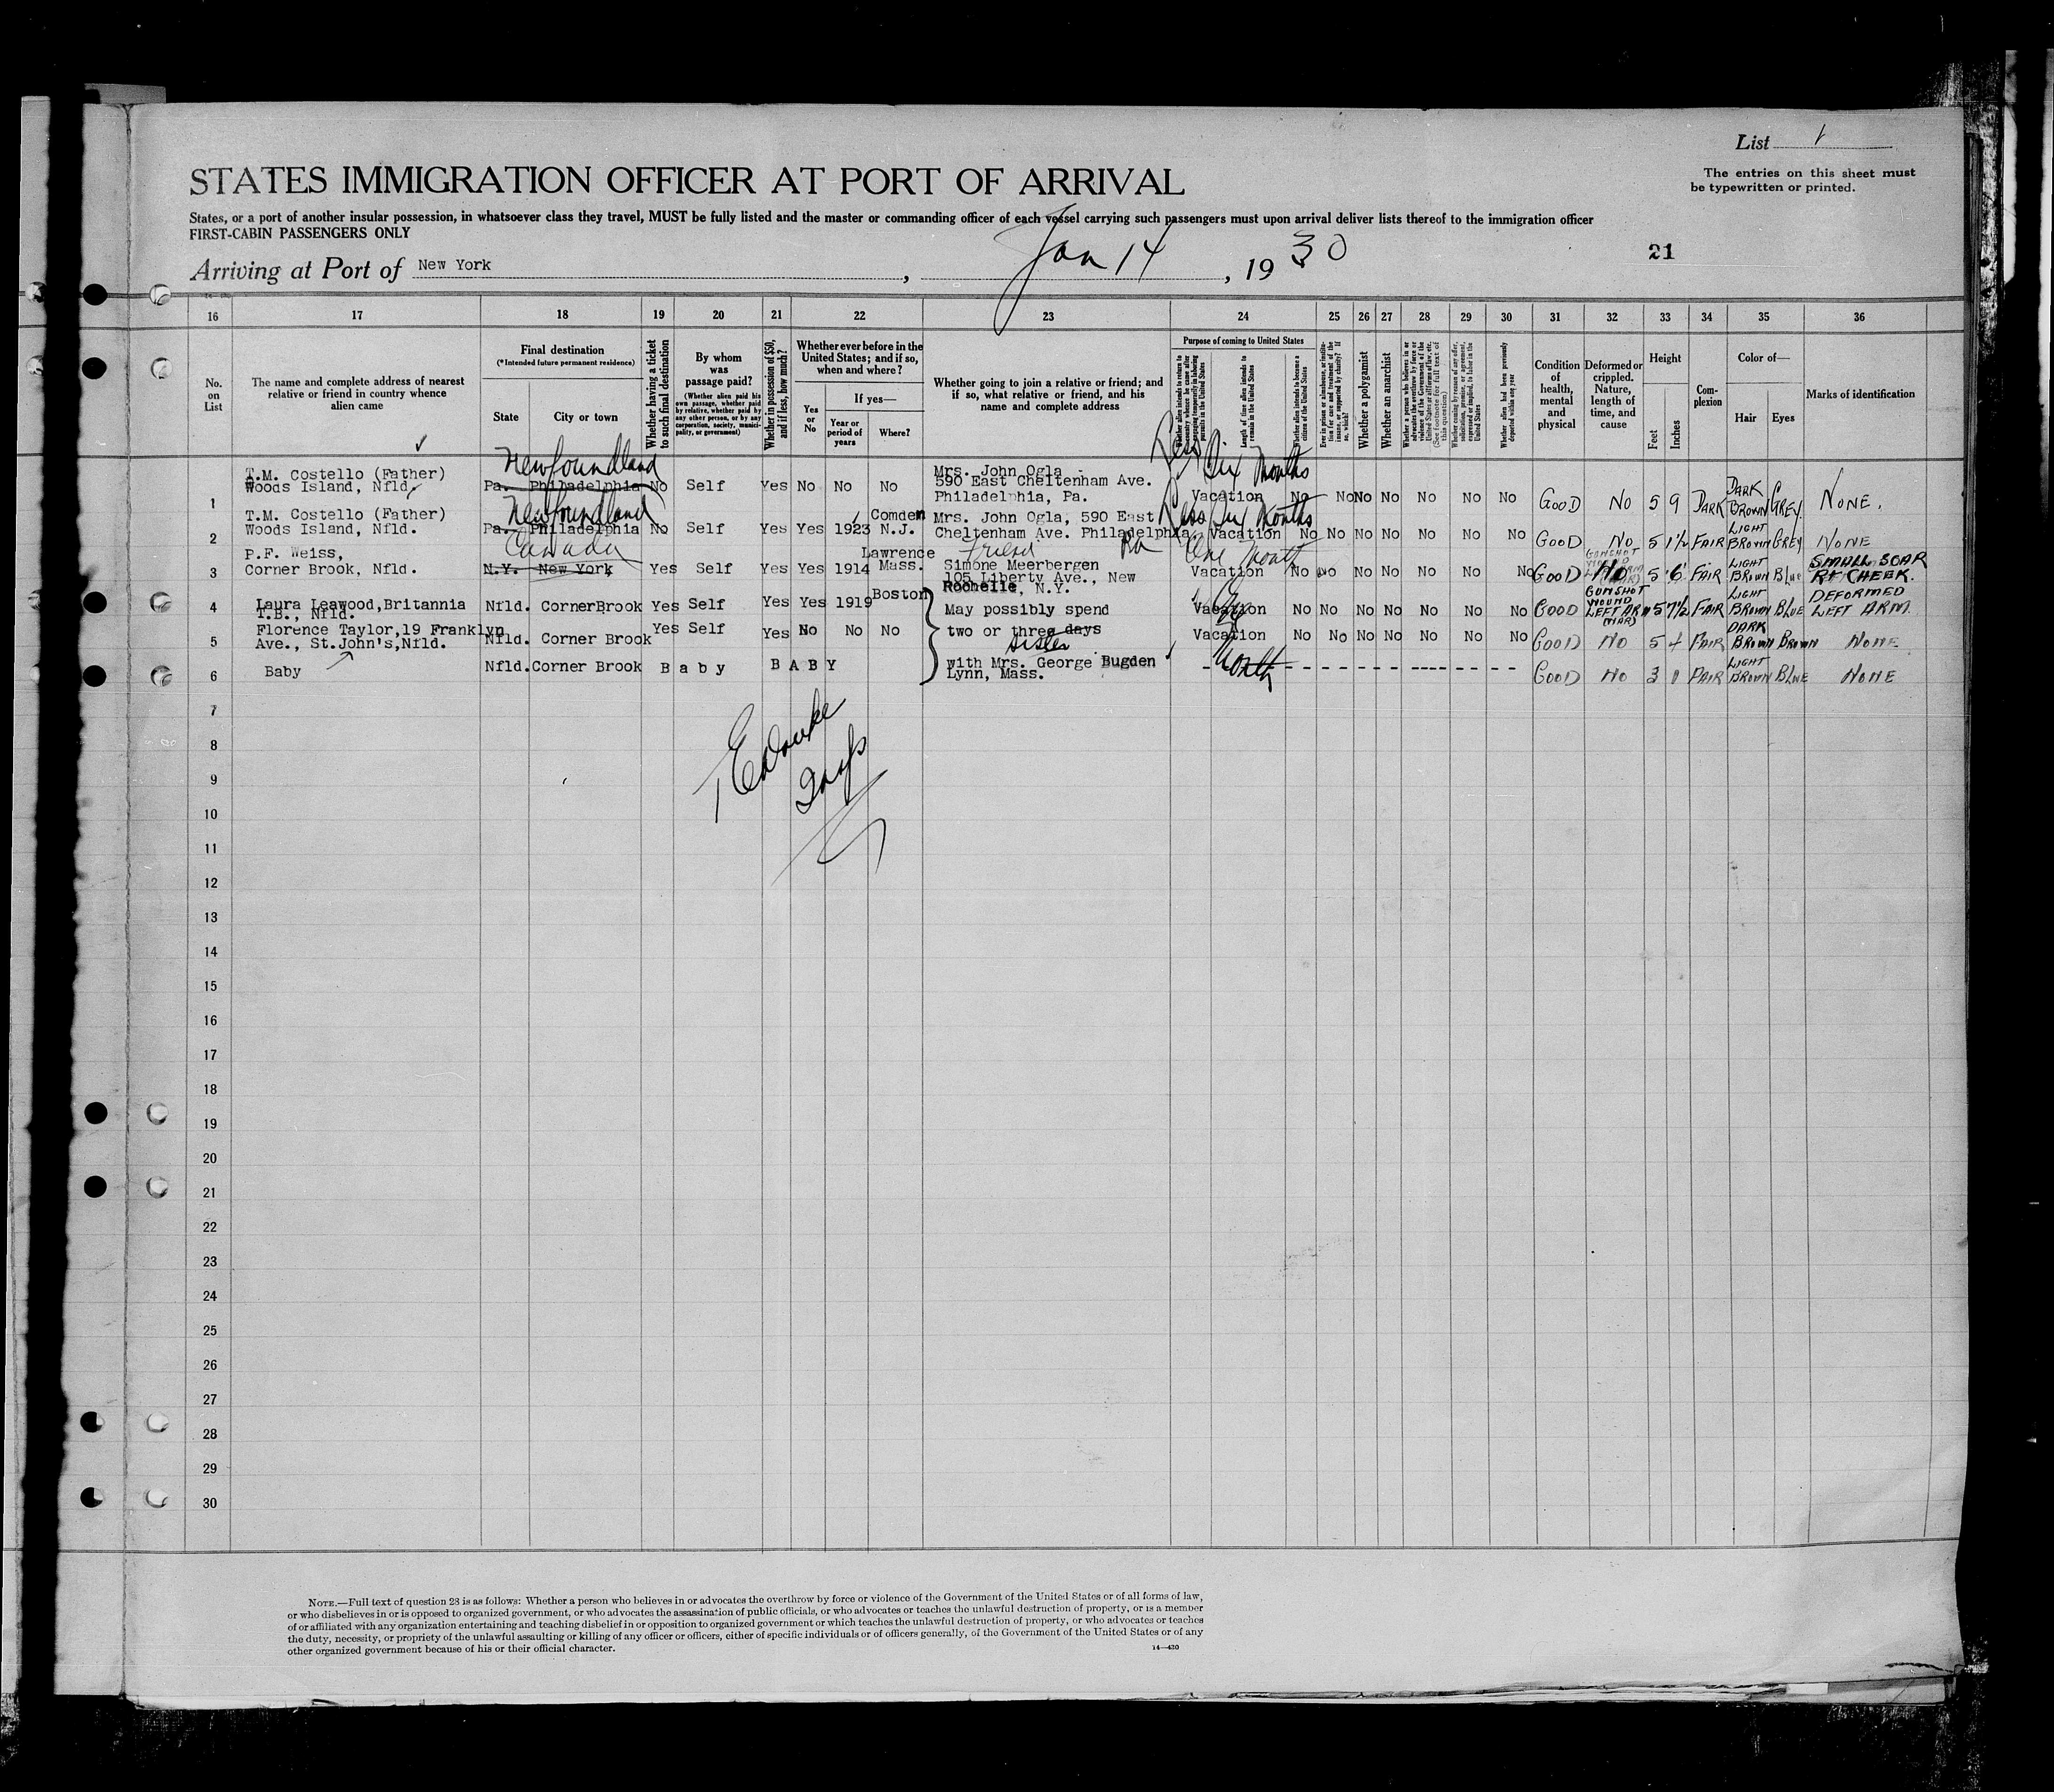 List 1
The entries on this sheet must
be typewritten or printed.
STATES IMMIGRATION OFFICER AT PORT OF ARRIVAL
States, or a port of another insular possession, in whatsoever class they travel, MUST be fully listed and the master or commanding officer of each vessel carrying such passengers must upon arrival deliver lists thereof to the immigration officer
FIRST-CABIN PASSENGERS ONLY
21
Arriving at Port of New York, Jan 14, 1930
16 17 18 19 20 21 22 23 24 25 26 27 28 29 30 31 32 33 34 35 36
No. on List
The name and complete address of nearest relative or friend in country whence alien came
Final destination
(*Intended future permanent residence)
State
City or town
Whether having a ticket to such final destination
By whom was passage paid?
(Whether alien paid his own passage, whether paid by relative, whether paid by any other person, or by any corporation, society, municipality, or government)
Whether in possession of $50, and if less, how much?
Whether ever before in the United States; and if so, when and where?
Yes or No
If yes—
Year or period of years
Where?
Whether going to join a relative or friend; and if so, what relative or friend, and his name and complete address
Purpose of coming to United States
Length of time alien intends to remain in the United States
Whether alien intends to become a citizen of the United States
Whether a polygamist
Whether an anarchist
Condition of health, mental and physical
Deformed or crippled. Nature, length of time, and cause
Height
Feet
Inches
Complexion
Color of—
Hair
Eyes
Marks of identification
Newfoundland Less Six Months
1 T.M. Costello (Father) Woods Island, Nfld. Pa. Philadelphia No Self Yes No No No Mrs. John Ogla - 590 East Cheltenham Ave. Philadelphia, Pa. Vacation No No No No No No No GOOD NO 5 9 DARK DARK BROWN GREY NONE.
Newfoundland Less Six Months
2 T.M. Costello (Father) Woods Island, Nfld. Pa. Philadelphia No Self Yes Yes 1923 Comden N.J. Mrs. John Ogla, 590 East Cheltenham Ave. Philadelphia Pa Vacation No No No No No No No GOOD NO 5 1½ FAIR LIGHT BROWN GREY NONE
Canada friend One Month
3 P.F. Weiss, Corner Brook, Nfld. N.Y. New York Yes Self Yes Yes 1914 Lawrence Mass. Simone Meerbergen 105 Liberty Ave., New Rochelle, N.Y. Vacation No No No No No No No GOOD NO 5 6 FAIR LIGHT BROWN Blue SMALL SCAR Rt CHEEK.
4 Laura Leawood,Britannia T.B., Nfld. Nfld. CornerBrook Yes Self Yes Yes 1919 Boston May possibly spend Vacation No No No No No No No GOOD GUNSHOT WOUND LEFT ARM (WAR) 5 7½ FAIR LIGHT BROWN BLUE DEFORMED LEFT ARM.
5 Florence Taylor,19 Franklyn Ave., St.John's,Nfld. Nfld. Corner Brook Yes Self Yes No No No two or three days Vacation No No No No No No No GOOD NO 5 4 FAIR DARK BROWN BROWN NONE
sister Month
6 Baby Nfld. Corner Brook Baby BABY with Mrs. George Bugden Lynn, Mass. GOOD NO 3 0 FAIR LIGHT BROWN BLUE NONE
7
8
9
10
11
12
13
14
15
16
17
18
19
20
21
22
23
24
25
26
27
28
29
30
NOTE.—Full text of question 28 is as follows: Whether a person who believes in or advocates the overthrow by force or violence of the Government of the United States or of all forms of law,
or who disbelieves in or is opposed to organized government, or who advocates the assassination of public officials, or who advocates or teaches the unlawful destruction of property, or is a member
of or affiliated with any organization entertaining and teaching disbelief in or opposition to organized government or which teaches the unlawful destruction of property, or who advocates or teaches
the duty, necessity, or propriety of the unlawful assaulting or killing of any officer or officers, either of specific individuals or of officers generally, of the Government of the United States or of any
other organized government because of his or their official character.
14—430